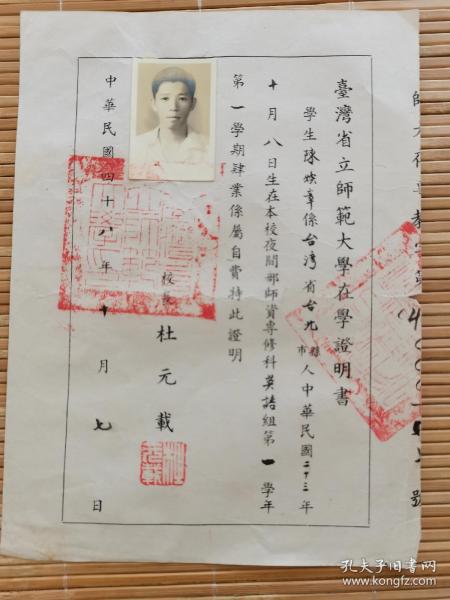 臺灣省立師範大學在學證明書
學生陳煥章係台灣省台北縣市人中華民國二十三年
十月八日生在本校夜間部師資專修科英語組第一學年
第一學期肄業係屬自費特此證明
校長 杜元載
中華民國四十八年十月七日
孔夫子旧书网
www.kongfz.com